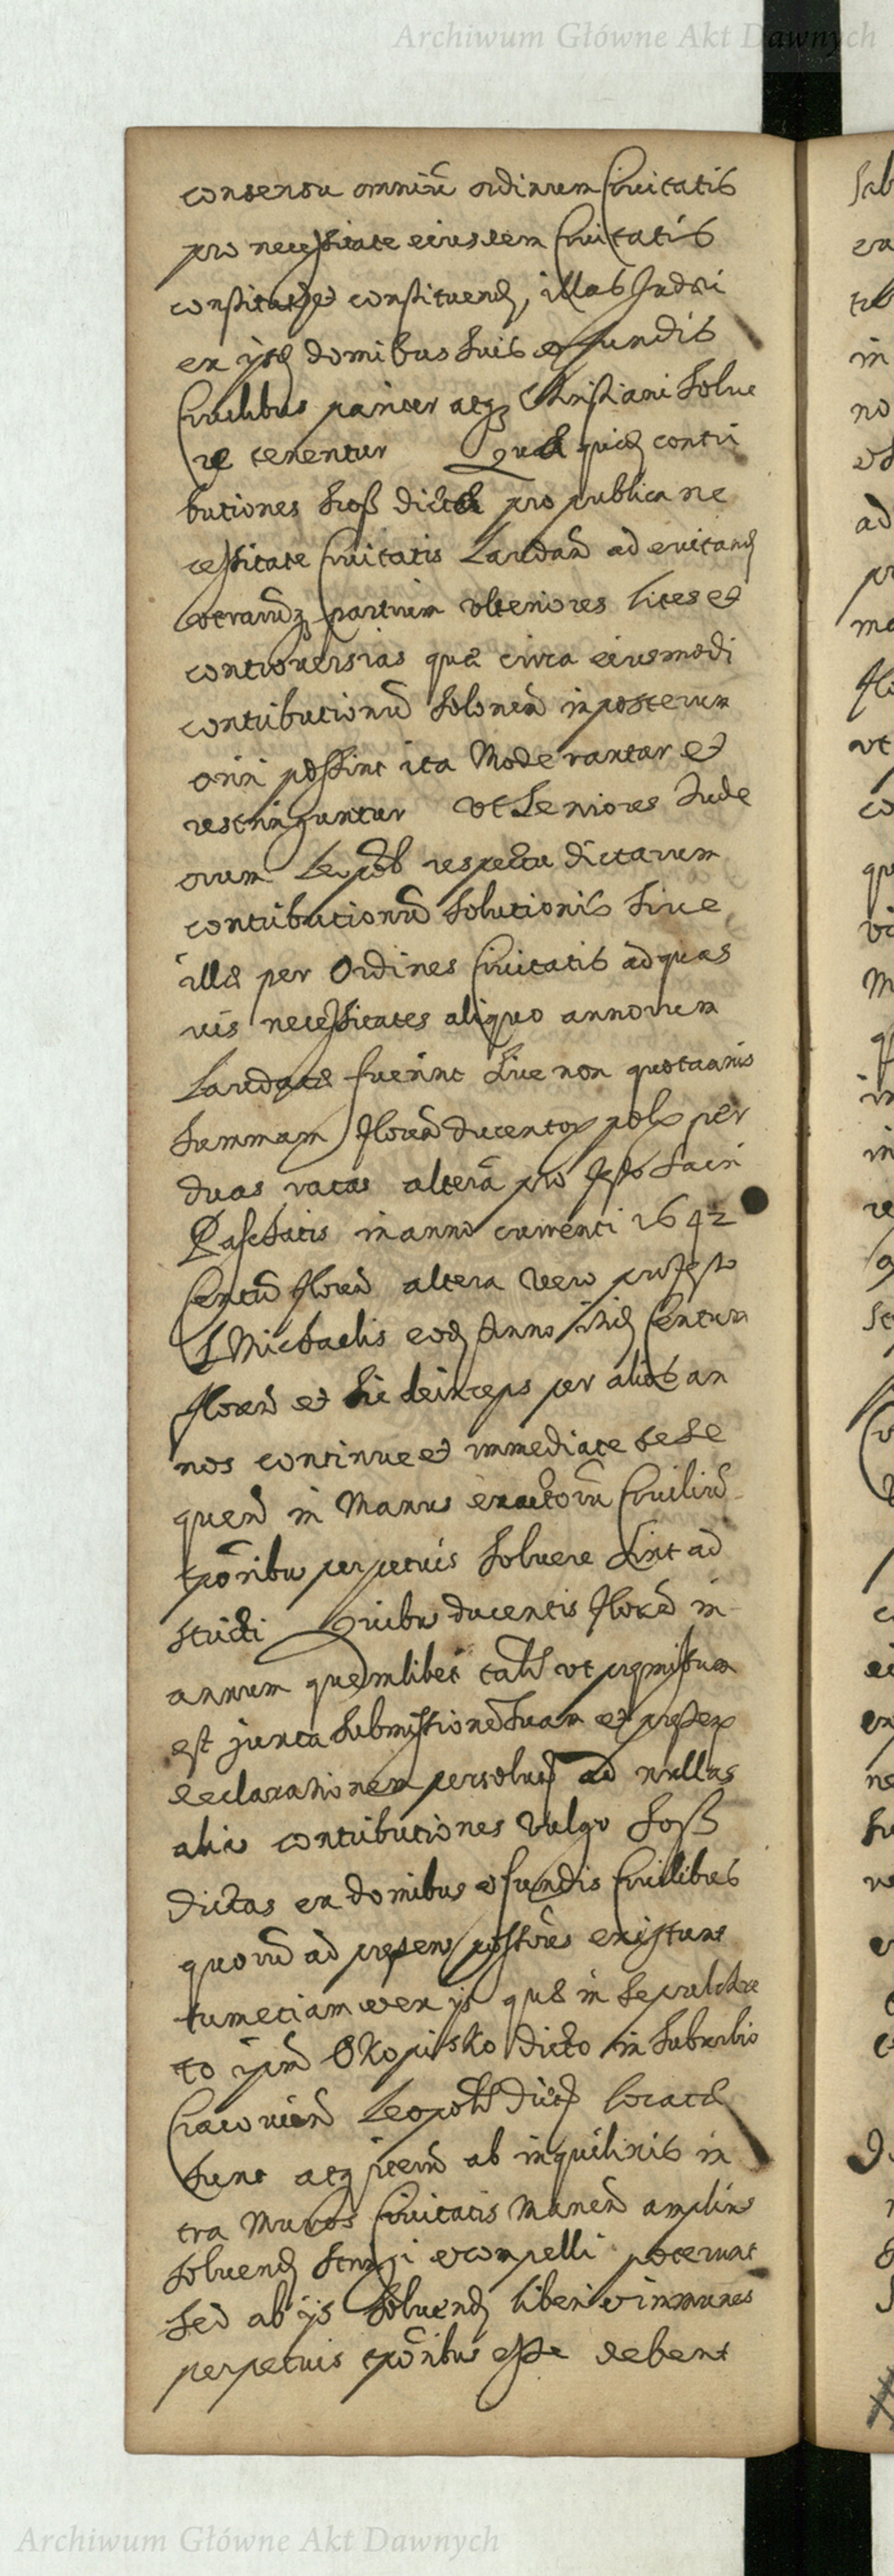 Archiwum Główne Akt Dawnych
consensu omniũ ordinum Civitatis
pro necessitate eiusdem Civitatis
constitutę et constituend, illas Judæi
ex ijsd domibus suis et fundis
Civilibus pariter atq Christiani solve
re tenentur Quæ quid contri
butiones Szoss dictæ pro publica ne
cessitate Civitatis Laudand ad evitand
utrarumq partium ulteriores lites et
controversias quæ circa eiusmodi
contributionũ solonem inposterum
oriri possint ita Moderantur et
restringuntur Vt Seniores Jude
orum Leopol respectu dictarum
contributionũ solutionis sive
illæ per Ordines Civitatis ad quas
vis necessitates aliquo annorum
Laudatæ fuerint sive non quotannis
summam floren ducentor pol per
duas ratas alterã pro festo sacri
Paschatis in anno currenti 1642
Centũ floren altera vero pro festo
S Michaelis eod Anno itid Centum
floren et sic deinceps per alios an
nos continue et immediate sese
quen in Manus exactorũ Civiliũ
tporibus perpetuis solvere sint ad
stricti Quibus ducentis floren in
annum quemlibet talr ut premissum
est juxta submissionem suam et presen
declarationem persolut ad nullas
alias contributiones vulgo Soss
dictas ex domibus et fundis Civilibus
quorũ ad presens possores existunt
tum etiam et ex ijs quæ in sepulchre
to ipsor Okopisko dicto in suburbio
Cracovien Leopol dict locatæ
sunt atq item ab inquilinis in
tra Muros Civitatis manen amplius
solvend stringi et compelli poterunt
sed ab ijs solvend liberi et immunes
perpetuis tporibus esse debent
Archiwum Główne Akt Dawnych